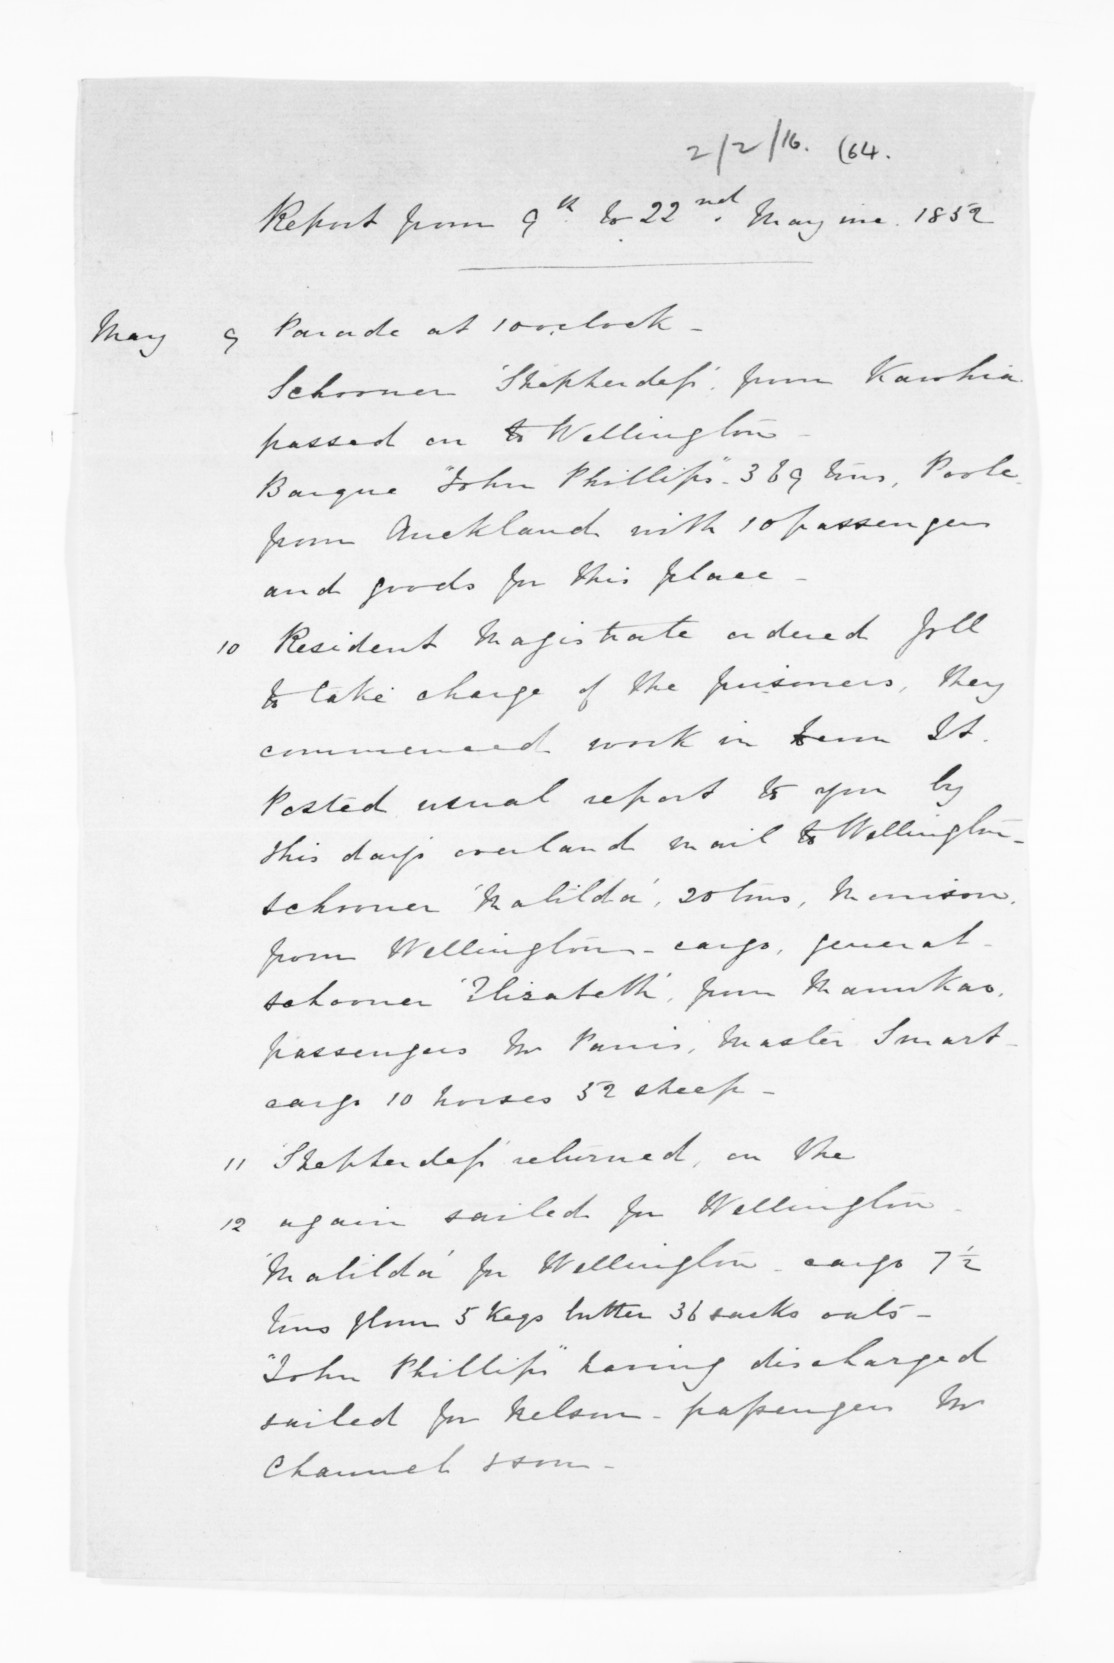 2/2/16. (64.
Report from 9th to 22nd. May inc. 1852
May 9 Parade at 10 o'clock -
Schooner 'Shepherdess', from Kawhia
passed on to Wellington -
Barque "John Phillips" - 369 tons, Poole.
from Auckland with 10 passengers
and goods for this place -
10 Resident Magistrate ordered Joll
to take charge of the prisoners, they
commenced work in St.
Posted usual report to you by
this day's overland mail to Wellington -
schooner 'Matilda', 20 tons, Morrison.
from Wellington - cargo, general -
schooner 'Elizabeth', from Manukao,
passengers Mr Parris, Master Smart -
cargo 10 horses 52 sheep -
11 'Shepherdess' returned, on the
12 again sailed for Wellington -
'Matilda' for Wellington - cargo 7½
tons flour 5 kegs butter 36 sacks oats -
"John Phillips" having discharged
sailed for Nelson - passengers Mr
Channel & son -